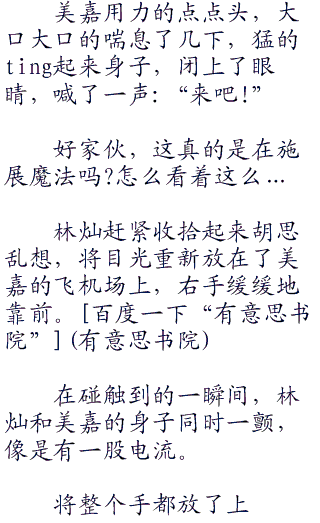 美嘉用力的点点头，大
口大口的喘息了几下，猛的
ting起来身子，闭上了眼
睛，喊了一声：“来吧!”
好家伙，这真的是在施
展魔法吗?怎么看着这么…
林灿赶紧收拾起来胡思
乱想，将目光重新放在了美
嘉的飞机场上，右手缓缓地
靠前。[百度一下“有意思书
院”](有意思书院)
在碰触到的一瞬间，林
灿和美嘉的身子同时一颤，
像是有一股电流。
将整个手都放了上